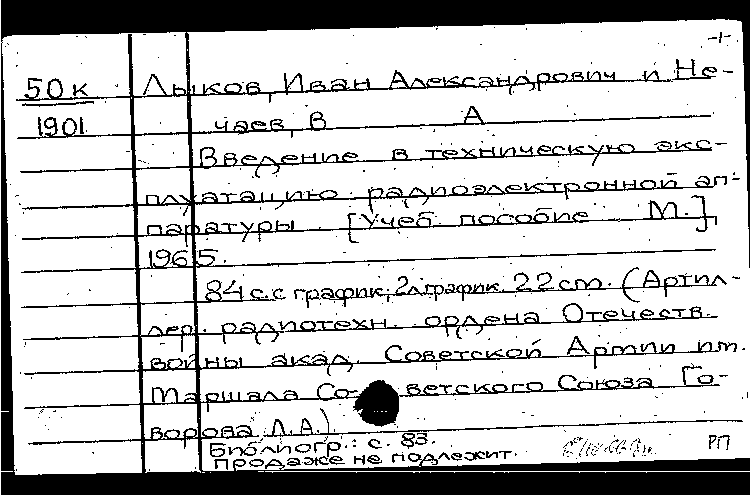 -1-
50к Лыков, Иван Александрович и Не-
1901 чаев, В А
Введение в техническую экс-
плуатацию радиоэлектронной ап-
паратуры [Учеб. пособие М.],
1965.
84 с. с график; 2 л. график. 22 cm. (Артил-
лер. радиотехн. ордена Отечеств.
войны акад. Советской Армии им.
Маршала Советского Союза Го-
ворова Л.А.)
Библиогр.: с. 83.
Продаже не подлежит.
РП